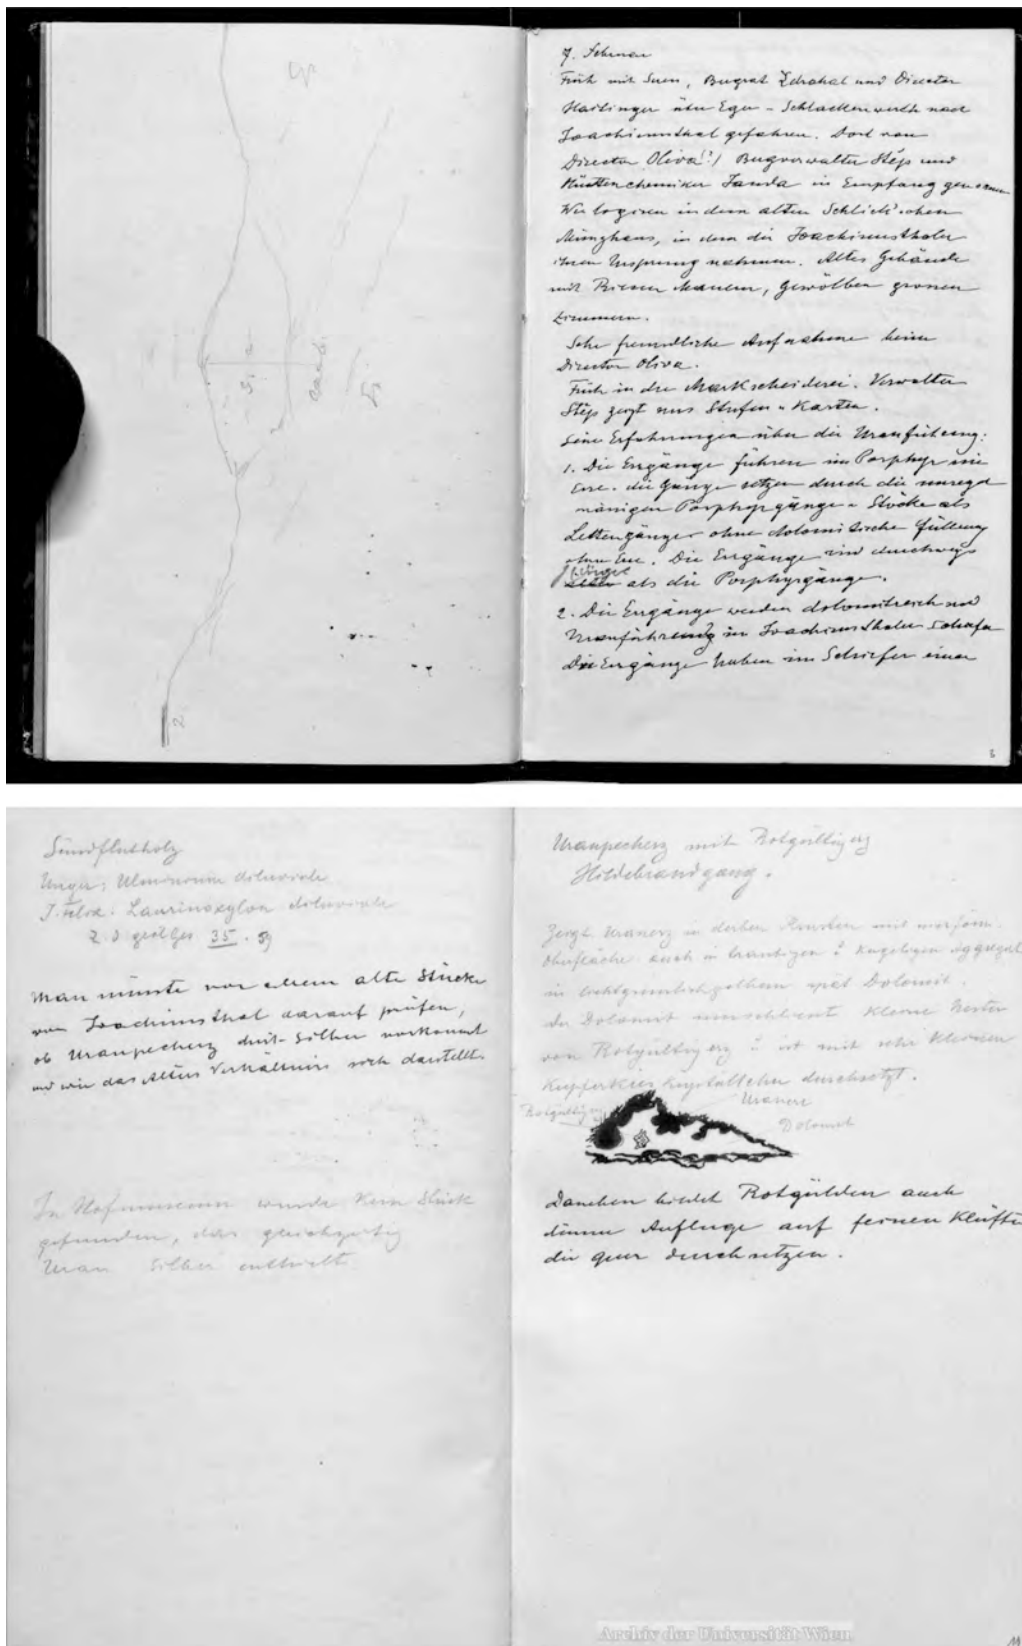 7. Februar
Früh mit Suess, Bergrat Zdrahal und Director
Haitinger über Eger - Schlackenwerth nach
Joachimsthal gefahren. Dort von
Director Oliva(?) Bergverwalter Stěp und
Hüttenchemiker Janda in Empfang genommen
Wir logiren in dem alten Schlick'schen
Münzhaus, in dem die Joachimsthaler
ihren Ursprung nahmen. Altes Gebäude
mit Riesen Mauern, Gewölben grossen
Zimmern.
Sehr freundliche Aufnahme beim
Director Oliva.
Früh in die Markscheiderei. Verwalter
Stěp zeigt uns Stufen u Karten.
Seine Erfahrungen über die Uranführung:
1. Die Erzgänge führen im Porphyr nie
Erze. die Gänge setzen durch die unregel
mässigen Porphyrgänge u Stöcke als
Lettengänge ohne dolomitische Füllung
ohne Erze. Die Erzgänge sind durchwegs
jünger
als die Porphyrgänge.
2. Die Erzgänge werden dolomitreich und
Uranführend im Joachimsthaler Schiefer
Die Erzgänge haben im Schiefer einen
3
Sündflutholz
Unger: Ulminium diluviale
J. Felix: Laurinoxylon diluviale
Z. d geol Ges 35. 59
Man müsste vor allem alte Stücke
von Joachimsthal darauf prüfen,
ob Uranpecherz mit Silber vorkommt
und wie das Alters Verhältnis sich darstellt.
Im Hofmuseum wurde kein Stück
gefunden, das gleichzeitig
Uran Silber enthielt
Uranpecherz mit Rotgültigerz
Hildebrandgang.
Zeigt Uranerz in derben Krusten mit
Oberfläche auch in traubigen u kugeligen Aggregat
in lichtgrünlichgelbem spät Dolomit.
der Dolomit umschliesst kleine Nester
von Rotgültigerz u ist mit sehr kleinen
Kupferkies Kryställchen durchsetzt.
Rotgültigerz
Uranerz
Dolomit
Daneben bildet Rotgülden auch
dünne Anflüge auf feinen Klüften
die quer durchsetzen.
Archiv der Universität Wien